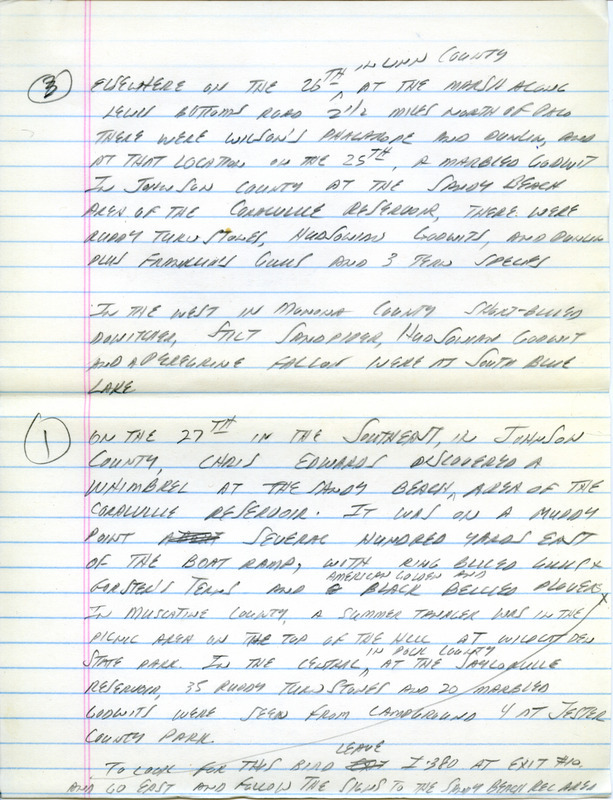 IN LINN COUNTY
3 ELSEWHERE ON THE 26TH ^ AT THE MARSH ALONG
LEWIS BOTTOMS ROAD 2 1/2 MILES NORTH OF PALO
THERE WERE WILSON'S PHALAROPE AND DUNLIN, AND
AT THAT LOCATION ON THE 25TH, A MARBLED GODWIT
IN JOHNSON COUNTY AT THE SANDY BEACH
AREA OF THE CORALVILLE RESERVOIR, THERE WERE
RUDDY TURNSTONES, HUDSONIAN GODWITS, AND DUNLIN
PLUS FRANKLIN'S GULLS AND 3 TERN SPECIES
IN THE WEST IN MONONA COUNTY SHORT-BILLED
DOWITCHER, STILT SANDPIPER, HUDSONIAN GODWIT
AND A PEREGRINE FALCON WERE AT SOUTH BLUE
LAKE
1 ON THE 27TH IN THE SOUTHEAST, IN JOHNSON
COUNTY, CHRIS EDWARDS DISCOVERED A
WHIMBREL AT THE SANDY BEACH, AREA OF THE
CORALVILLE RESERVOIR. IT WAS ON A MUDDY
POINT SEVERAL HUNDRED YARDS EAST
OF THE BOAT RAMP, WITH RING BILLED GULLS
AMERICAN GOLDEN AND
FORSTER'S TERNS AND BLACK BELLIED PLOVERS X
IN MUSCATINE COUNTY, A SUMMER TANAGER WAS IN THE
PICNIC AREA ON THE TOP OF THE HILL AT WILDCAT DEN
IN POLK COUNTY
STATE PARK. IN THE CENTRAL, ^ AT THE SAYLORVILLE
RESERVOIR, 35 RUDDY TURNSTONES AND 20 MARBLED
GODWITS WERE SEEN FROM CAMPGROUND 4 AT JESTER
COUNTY PARK
LEAVE
TO LOOK FOR THIS BIRD I-380 AT EXIT #10
AND GO EAST AND FOLLOW THE SIGNS TO THE SANDY BEACH REC AREA